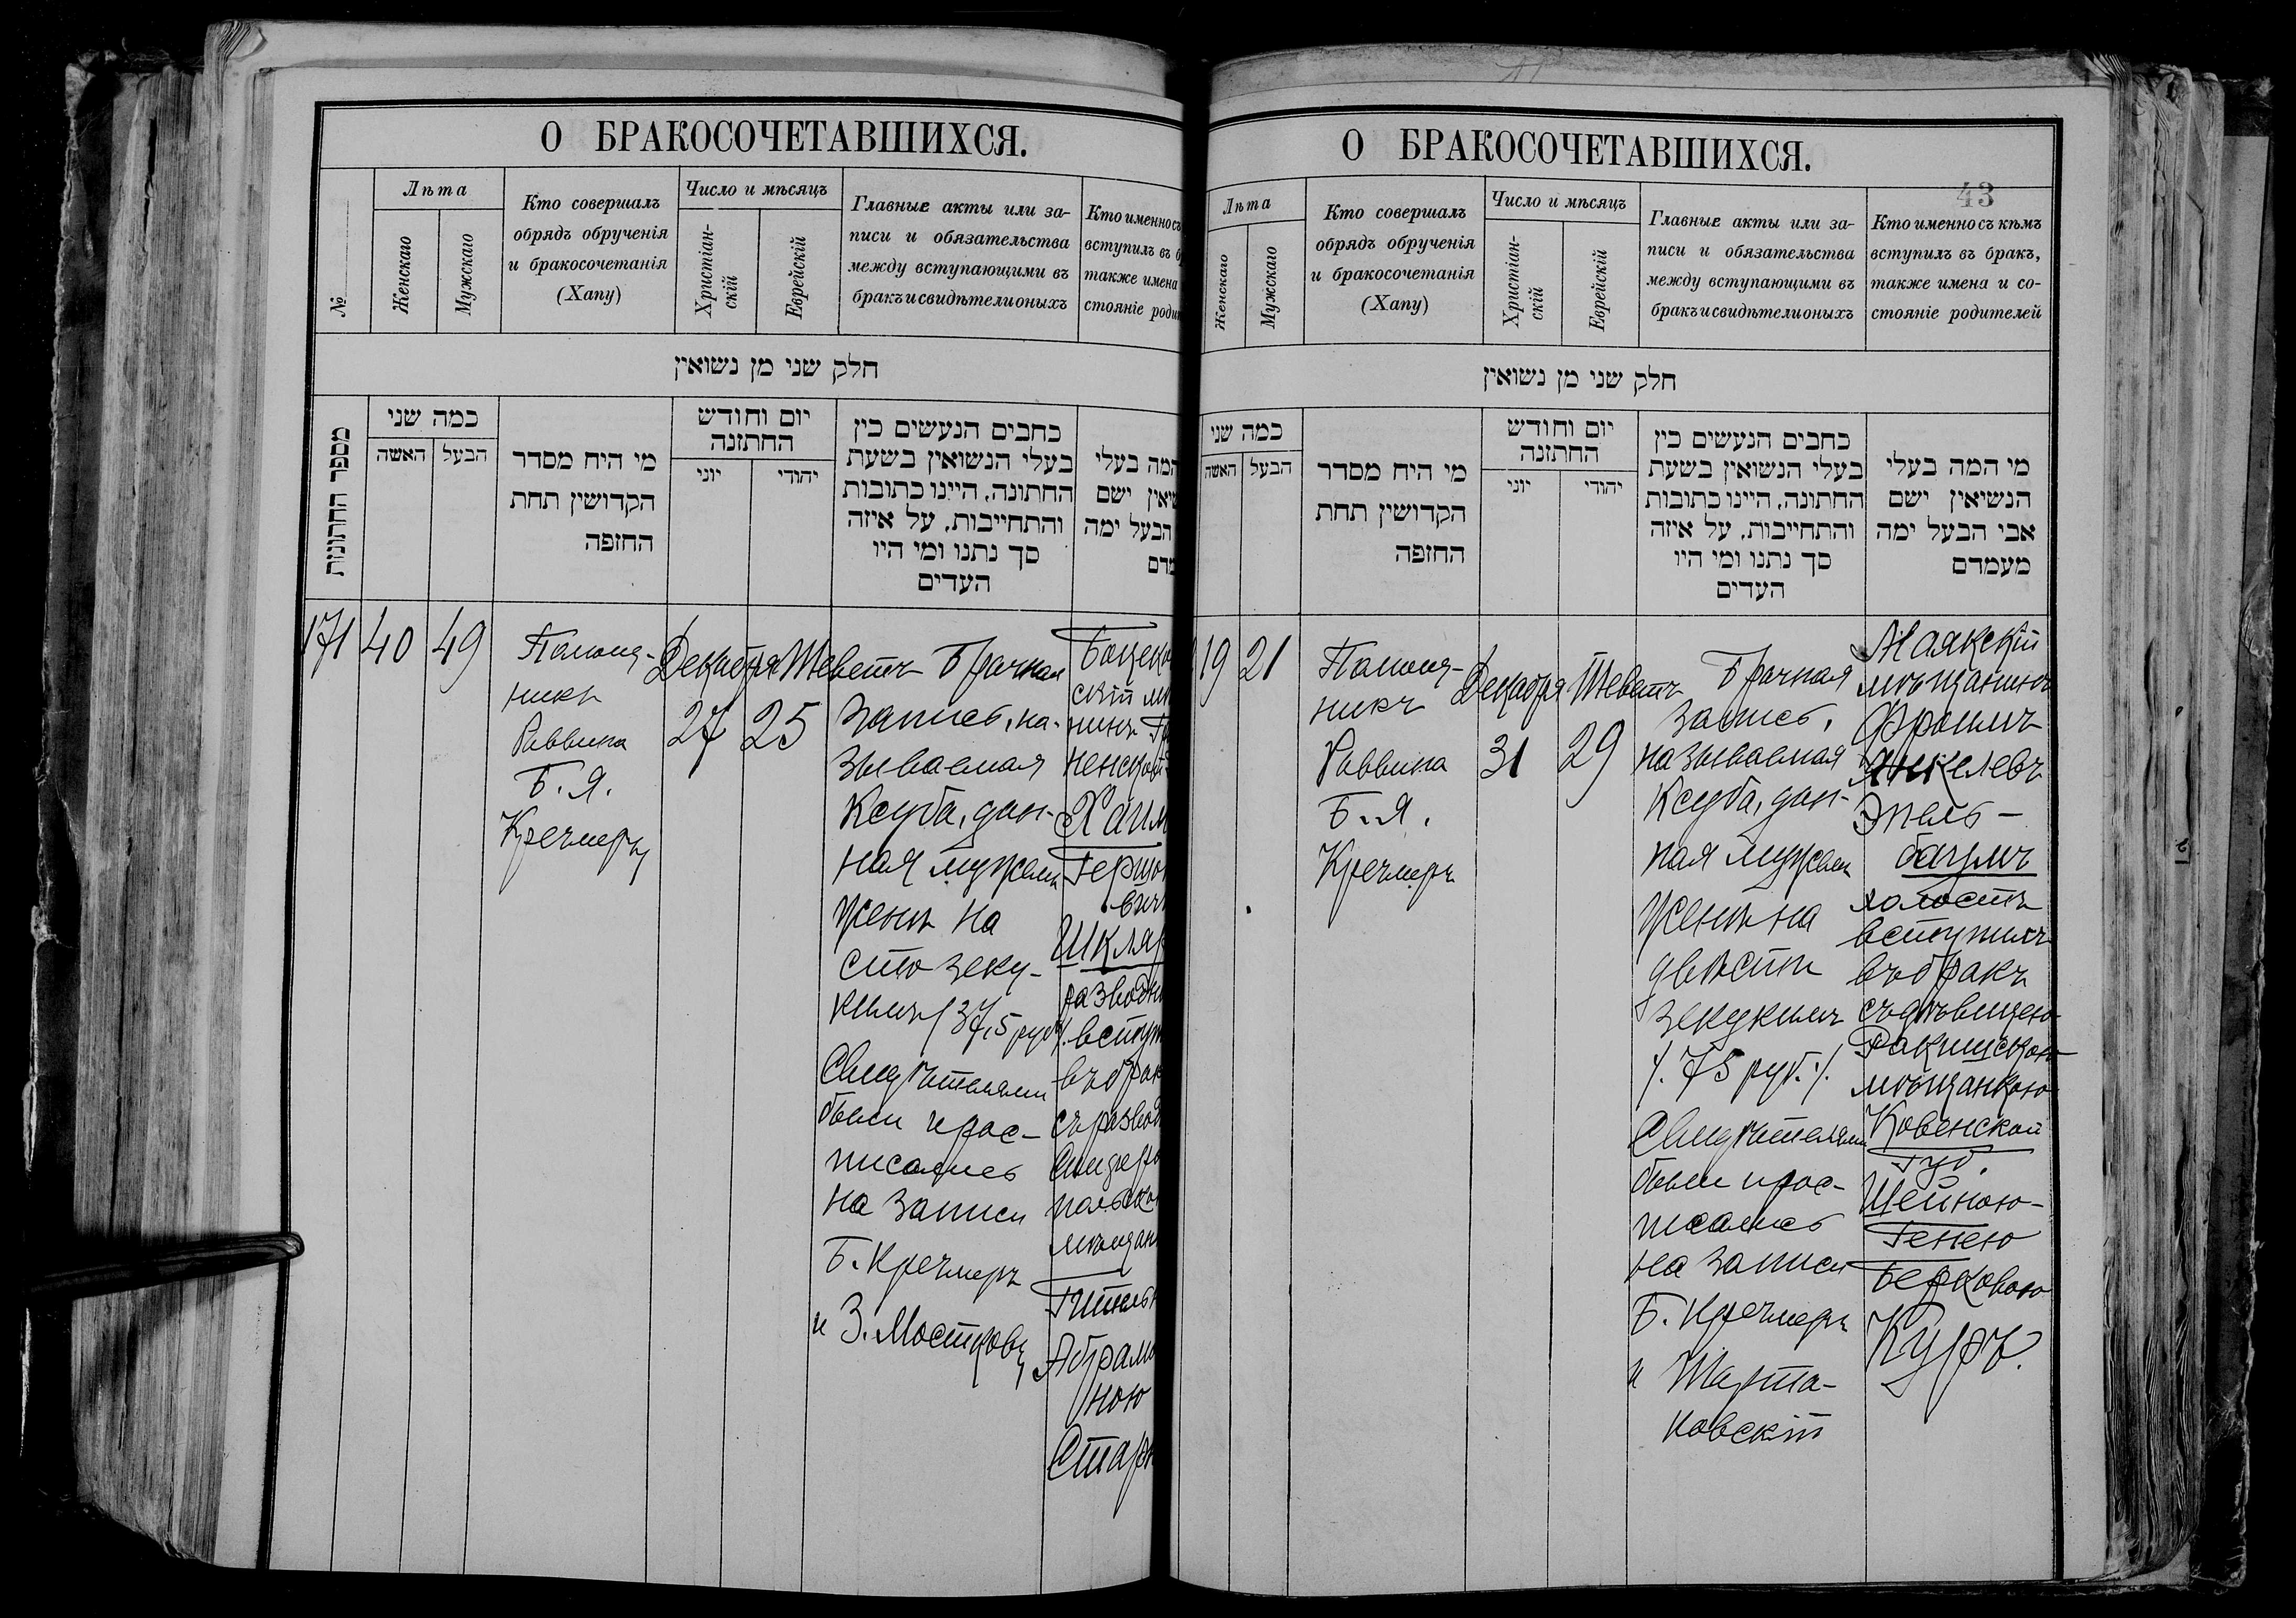 О БРАКОСОЧЕТАВШИХСЯ.
№
Лѣта
Женскаго
Мужскаго
Кто совершалъ
обрядъ обрученія
и бракосочетанія
(Хапу)
Число и мѣсяцъ
Христіан-
скій
Еврейскій
Главные акты или за-
писи и обязательства
между вступающими въ
бракъ и свидѣтели оныхъ
Кто именно съ
вступилъ въ б
также имена
стояніе роди
חלק שני מן נשואין
מספר החתונות
כמה שני
האשה
הבעל
מי היח מסדר
הקדושין תחת
החזפה
יום וחודש
החתזנה
יוני
יהודי
כחבים הנעשים כין
בעלי הנשואין בשעת
החתונה, היינו כתובות
והתחייבות, על איזה
סך נתנו ומי היו
העדים
המה בעלי
שיאין ישם
הבעל ימה
מדם
171
40
49
Помощ-
никъ
Раввина
Б. Я.
Кречмеръ
Декабря
27
Теветъ
25
Брачная
запись, на-
зываемая
Ксуба, дан-
ная мужемъ
женѣ на
сто зеку-
кимъ (37,5 руб.)
Свидѣтелями
были и рос-
писались
на записи
Б. Кречмеръ
и З. Мостковъ
нин
Хаим
Гершо
вич
Шкляр
разводн
вступ
въ брак
съ развод
польско
мѣщан
Абрамо
ною
Старк
О БРАКОСОЧЕТАВШИХСЯ.
43
Лѣта
Женскаго
Мужскаго
Кто совершалъ
обрядъ обрученія
и бракосочетанія
(Хапу)
Число и мѣсяцъ
Христіан-
скій
Еврейскій
Главные акты или за-
писи и обязательства
между вступающими въ
бракъ и свидѣтели оныхъ
Кто именно съ кѣмъ
вступилъ въ бракъ,
также имена и со-
стояніе родителей
חלק שני מן נשואין
כמה שני
האשה
הבעל
מי היח מסדר
הקדושין תחת
החזפה
יום וחודש
החתזנה
יוני
יהודי
כחבים הנעשים כין
בעלי הנשואין בשעת
החתונה, היינו כתובות
והתחייבות, על איזה
סך נתנו ומי היו
העדים
מי המה בעלי
הנשיאין ישם
אבי הבעל ימה
מעמדם
19
21
Помощ-
никъ
Раввина
Б. Я.
Кречмеръ
Декабря
31
Теветъ
29
Брачная
запись,
называемая
Ксуба, дан-
ная мужемъ
женѣ на
двѣсти
зекукимъ
/. 75 руб. /.
Свидѣтелями
были и рос-
писались
на записи
Б. Кречмеръ
и Шарта-
ковскій
Маякскій
мѣщанинъ
Фроимъ
Янкелевъ
Эпель-
баумъ
холостъ
вступилъ
въ бракъ
съ дѣвицею
Ракишскою
мѣщанкою
Ковенской
Губ.
Шейною-
Генею
Берковою
Куръ.